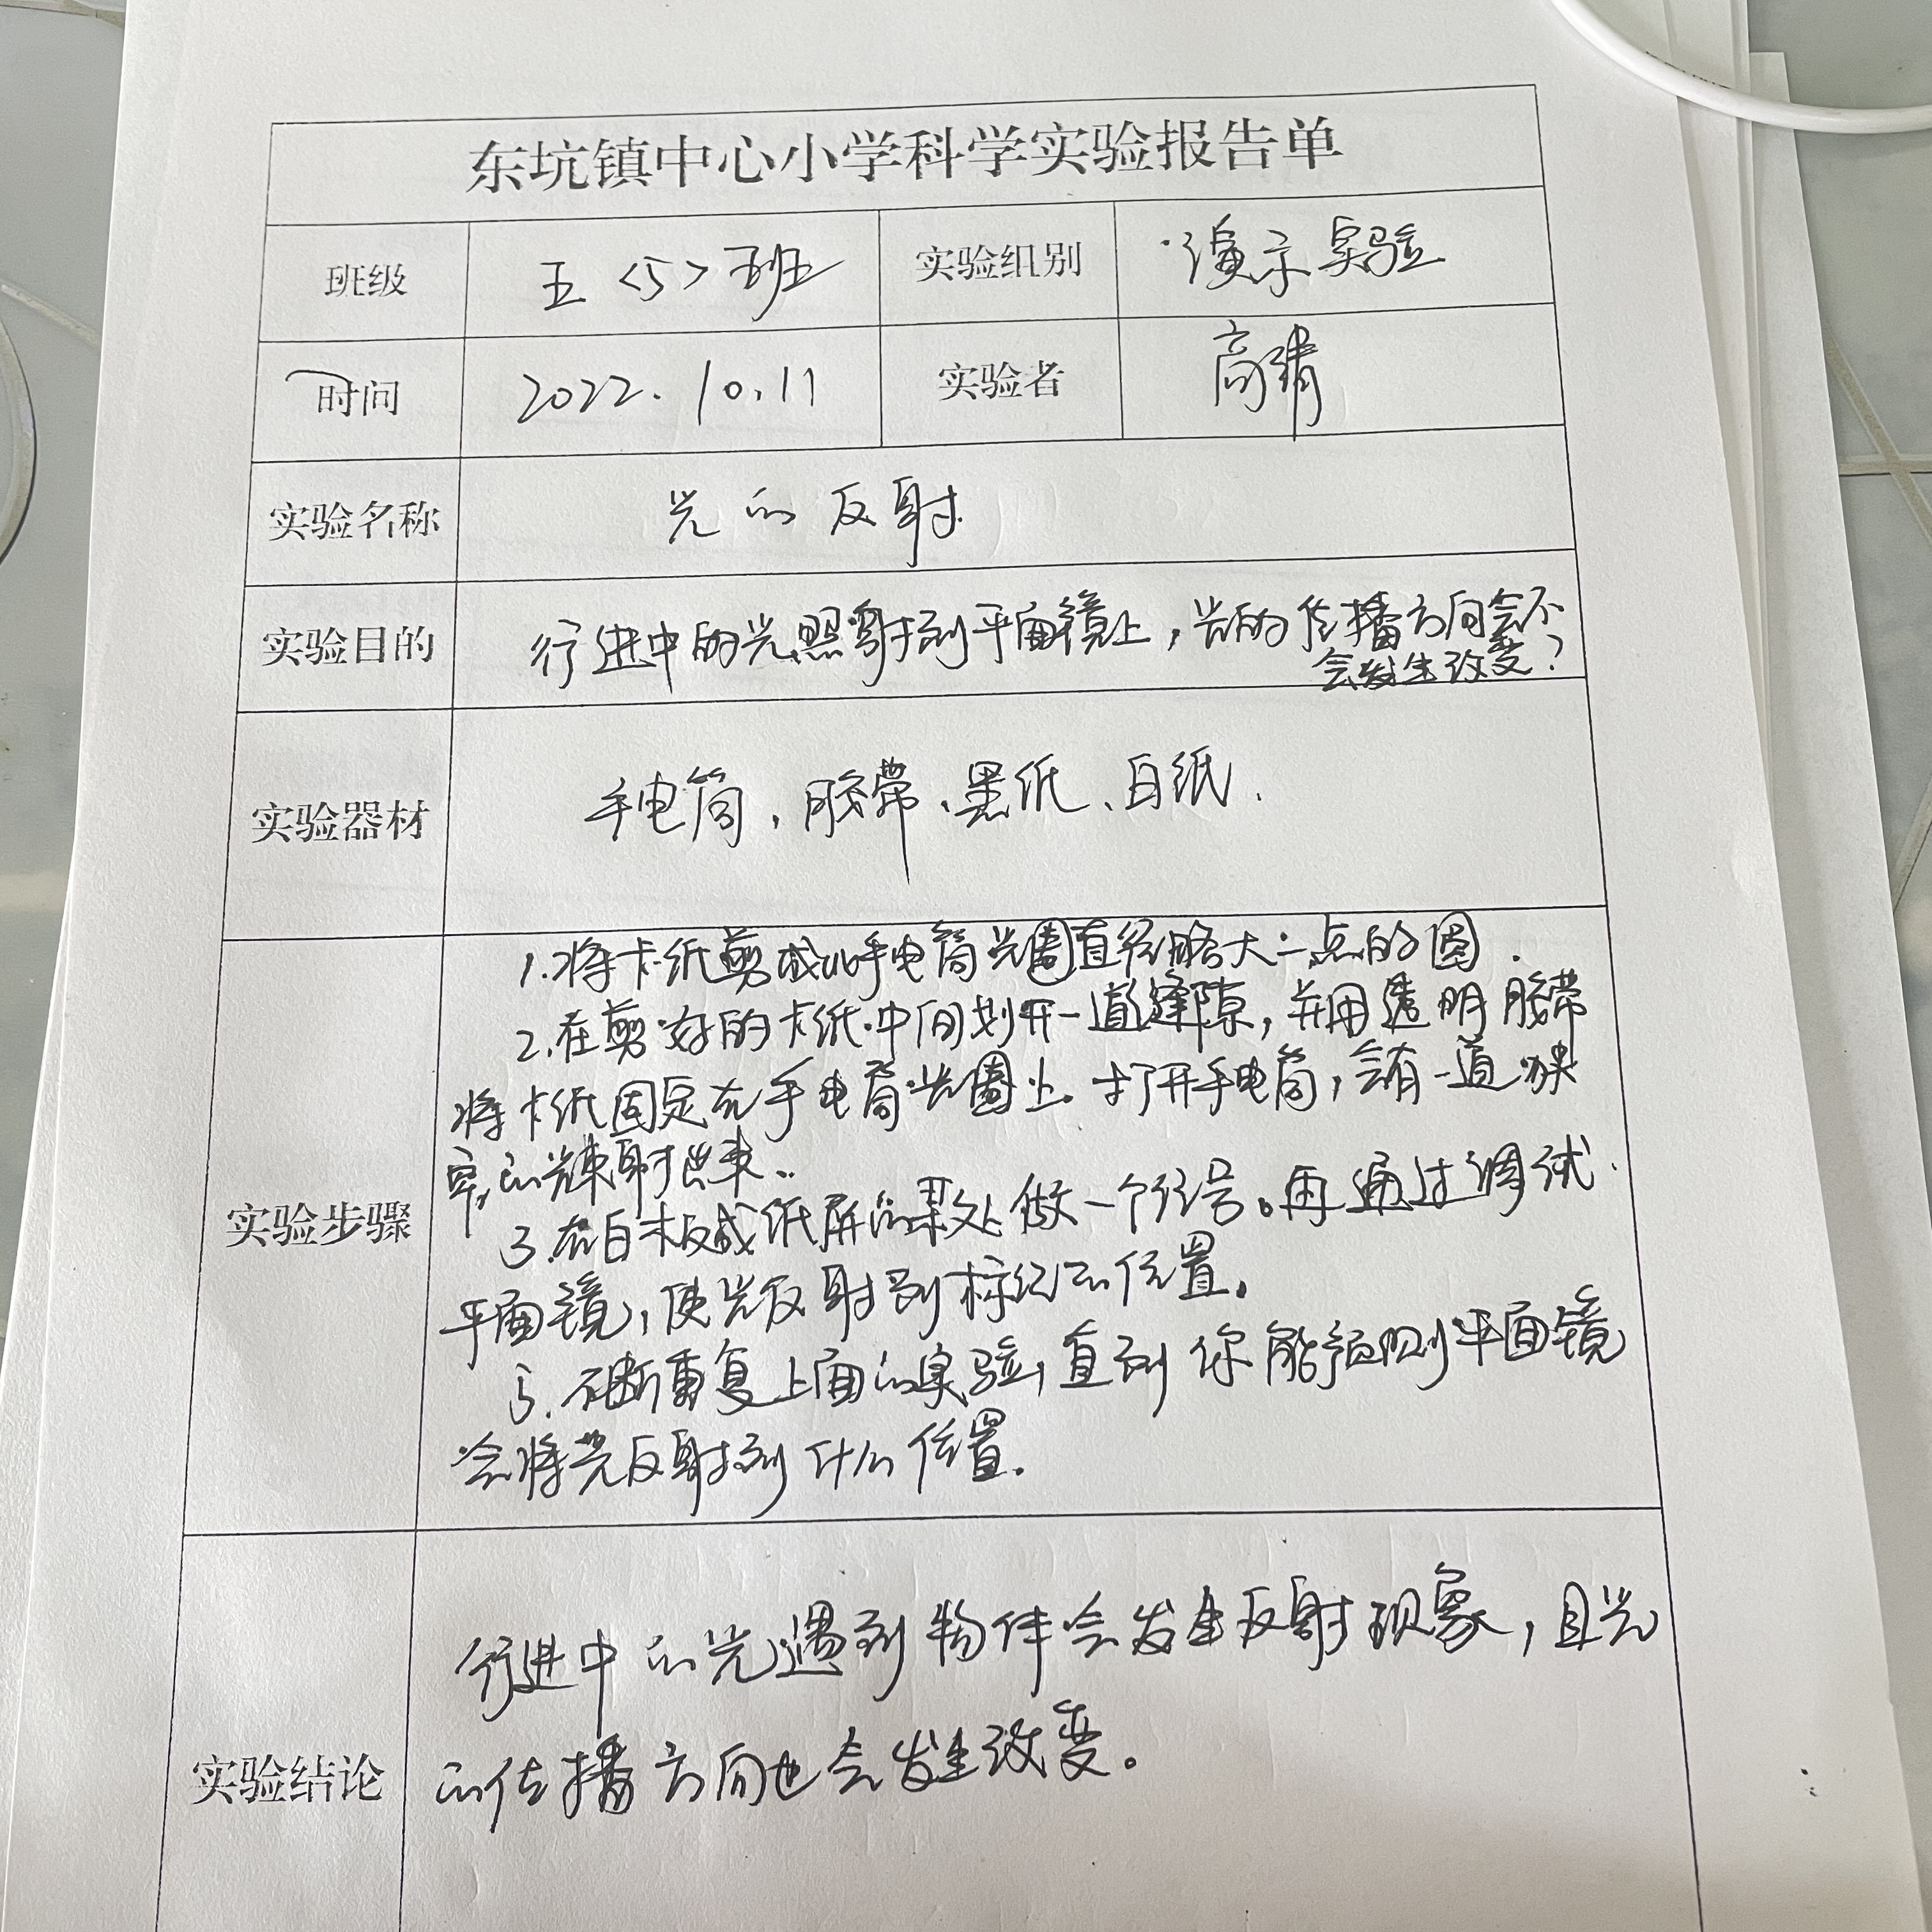 东坑镇中心小学科学实验报告单
班级 五<5>班 实验组别 演示实验
时间 2022.10.11 实验者 高婧
实验名称 光的反射
实验目的 行进中的光照射到平面镜上，光的传播方向会不
会发生改变？
实验器材 手电筒、胶带、黑纸、白纸.
实验步骤
1.将卡纸剪成比手电筒光圈直径略大一点的圆.
2.在剪好的卡纸中间划开一道缝隙，并用透明胶带
将卡纸固定在手电筒光圈上。打开手电筒，会有一道狭
窄的光束射出来.
3.在白板或纸屏的某处做一个记号。再通过调试
平面镜，使光反射到标记的位置。
5.不断重复上面的实验，直到你能预测平面镜
会将光反射到什么位置。
实验结论
行进中的光遇到物体会发生反射现象，且光
的传播方向也会发生改变。